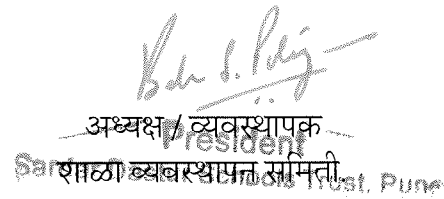 अध्यक्ष / व्यवस्थापक
President
शाळा व्यवस्थापन समिती.
Schools Trust, Pune